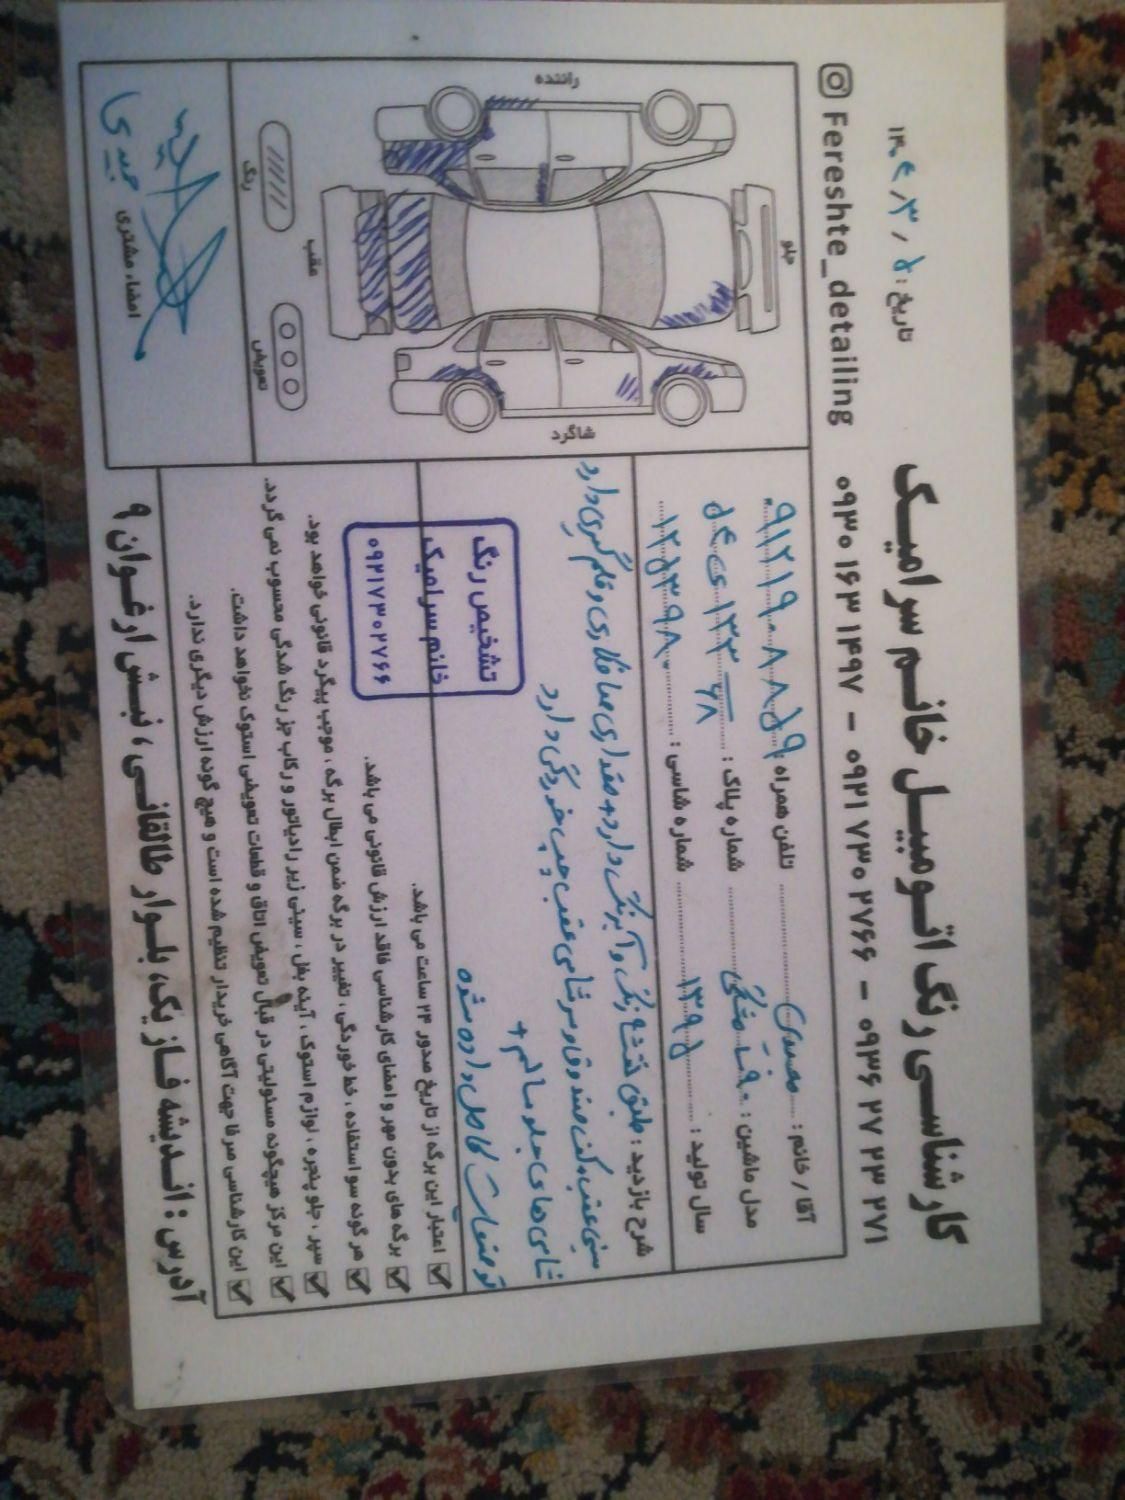 کارشناسی رنگ اتومبیل خانم سرامیک
تاریخ: ۱۴۰۴/۳/۵
Fereshte_detailing ۰۹۳۰ ۱۶۳ ۱۴۹۷ - ۰۹۲۱ ۷۳۰ ۲۷۶۶ - ۰۹۳۶ ۲۷ ۲۳ ۲۷۱
آقا / خانم: مجیدی تلفن همراه: ۰۹۱۲۱۹۰۸۸۵۹
مدل ماشین: مشکی شماره پلاک: ۵۴ی۱۳۳ ۶۸
سال تولید: ۱۳۹۵ شماره شاسی: ۱۲۵۳۹۸۰
شرح بازدید: طبق نقشه رنگ و آبرنگ دارد + مقداری صافکاری و قلم گیری دارد
سینی عقب، کف صندوق و سر شاسی عقب چپ خوردگی دارد
شاسی های جلو سالم +
توضیحات کامل داده شده
تشخیص رنگ
خانم سرامیک
۰۹۲۱۷۳۰۲۷۶۶
اعتبار این برگه از تاریخ صدور ۲۴ ساعت می باشد.
برگه های بدون مهر و امضای کارشناسی فاقد ارزش قانونی می باشد.
هر گونه سو استفاده، خط خوردگی، تغییر در برگه ضمن ابطال برگه، موجب پیگرد قانونی خواهد بود.
سپر، جلو پنجره، لوازم استوک، آینه بغل، سینی زیر رادیاتور و رکاب جز رنگ شدگی محسوب نمی گردد.
این مرکز هیچگونه مسئولیتی در قبال تعویض اتاق و قطعات تعویضی استوک نخواهد داشت.
این کارشناسی صرفا جهت آگاهی خریدار تنظیم شده است و هیچ گونه ارزش دیگری ندارد.
راننده
جلو
عقب
شاگرد
رنگ
تعویض
امضاء مشتری
مجیدی
آدرس: اندیشه فاز یک، بلوار طالقانی، نبش ارغوان ۹